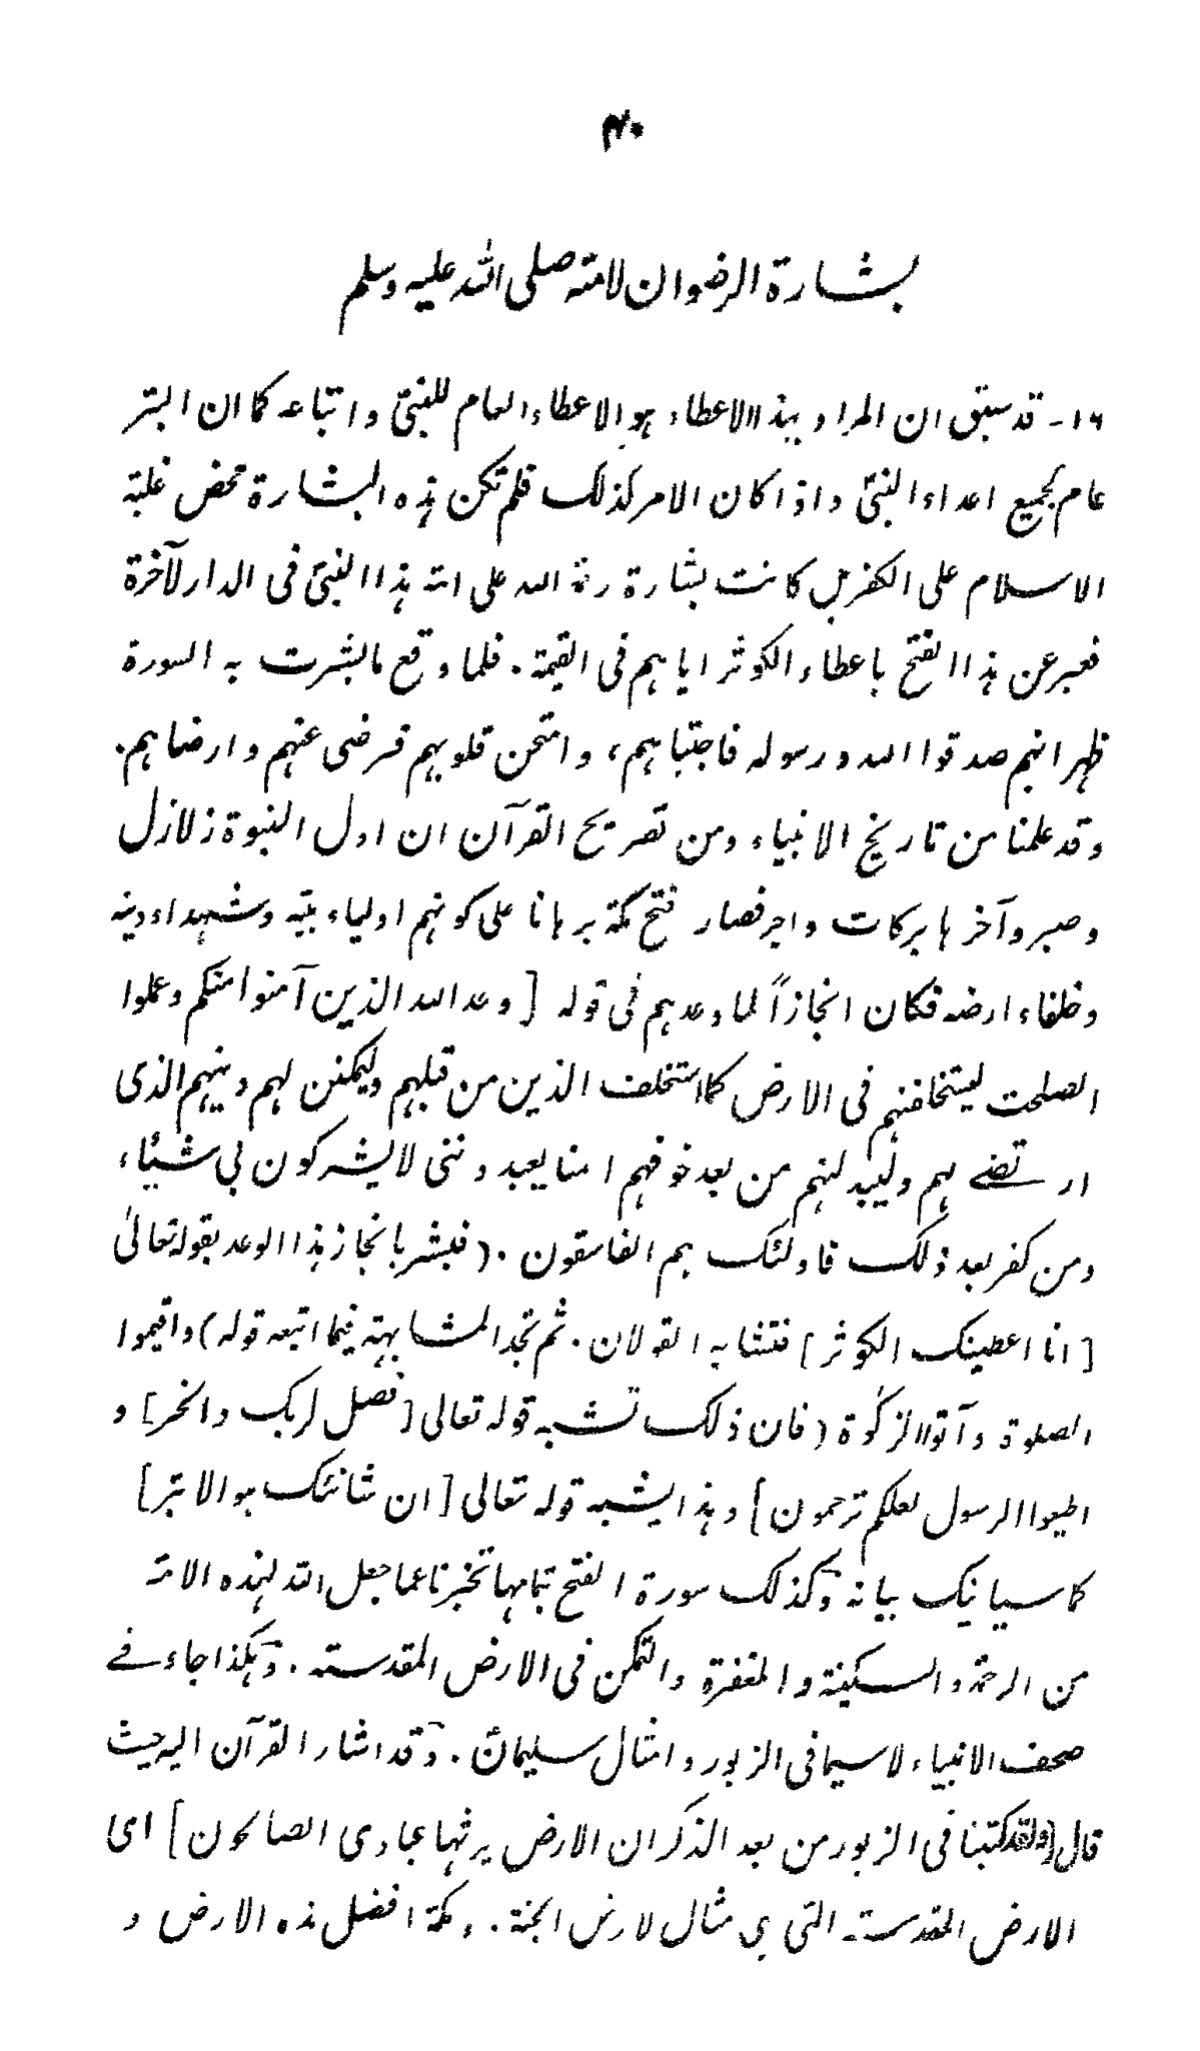 ۴۰
بشارة الرضوان لامته صلى الله عليه وسلم
۱۶۔ قد سبق ان المراد بهذا الاعطاء هو الاعطاء العام للنبیؐ واتباعه كما ان البتر
عام لجميع اعداء النبیؐ واذا كان الامر كذلك فلم تكن هذه البشارة محض غلبة
الاسلام على الكفر بل كانت بشارة رحمة الله على امته هذا النبیؐ فى الدار لآخرة
فعبر عن هذا الفتح باعطاء الكوثر اياهم فى القيمة. فلما وقع ما بشرت به السورة
ظهر انهم صدقوا الله ورسوله فاجتباهم، وامتحن قلوبهم فرضى عنهم وارضاهم.
وقد علمنا من تاريخ الانبياء ومن تصريح القرآن ان اول النبوة زلازل
وصبر وآخرها بركات واجر فصار فتح مكة برهانا على كونهم اولياء بيته وشهداء دينه
وخلفاء ارضه فكان انجازاً لما وعدهم فى قوله [وعد الله الذين آمنوا منكم وعملوا
الصلحت ليستخلفنهم فى الارض كما استخلف الذين من قبلهم وليمكنن لهم دينهم الذى
ارتضے لهم وليبدلنهم من بعد خوفهم امنا يعبدوننى لا يشركون بى شيئاء
ومن كفر بعد ذلك فاولئك هم الفاسقون. (فبشر بانجاز هذا الوعد بقوله تعالىٰ
[انا اعطينك الكوثر] فتشابه القولان. ثم تجد المشابهة فيما اتبعه قوله) واقيموا
الصلوة وآتوا الزكوٰة (فان ذلك تشبه قوله تعالى [فصل لربك وانحر] و
اطيعوا الرسول لعلكم ترحمون] وهذا يشبه قوله تعالى [ان شانئك هو الابتر]
كما سيايتك بيانه وكذلك سورة الفتح بتمامها تخبرنا عما جعل الله لهذه الامة
من الرحمة والسكينة والمغفرة والتمكن فى الارض المقدسته. وهكذا جاء فے
صحف الانبياء لاسيما فى الزبور وامثال سليمانؑ. وقد اشار القرآن اليه حيث
قال [ولقد كتبنا فى الزبور من بعد الذكر ان الارض يرثها عبادى الصالحون] اى
الارض المقدسته التى هى مثال لارض الجنة. ومكة افضل هذه الارض و